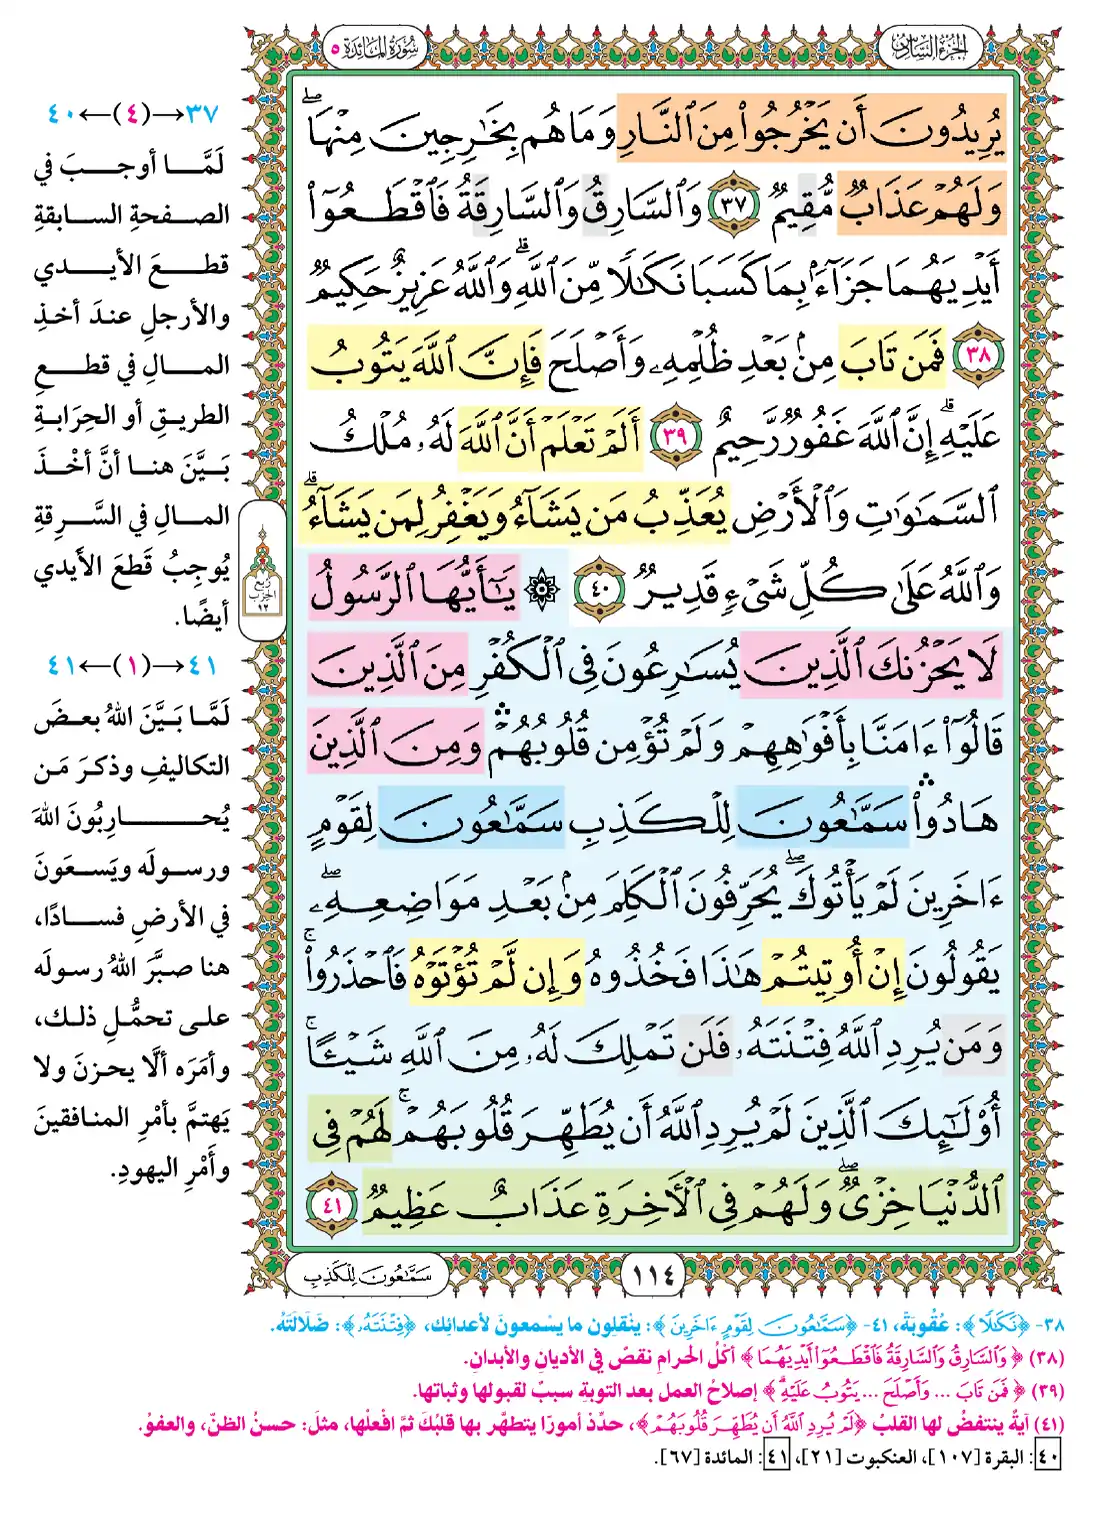 الجزء السادس
سورة المائدة ٥
يُرِيدُونَ أَن يَخْرُجُوا۟ مِنَ ٱلنَّارِ وَمَا هُم بِخَٰرِجِينَ مِنْهَا ۖ
وَلَهُمْ عَذَابٌ مُّقِيمٌ ٣٧ وَٱلسَّارِقُ وَٱلسَّارِقَةُ فَٱقْطَعُوٓا۟
أَيْدِيَهُمَا جَزَآءًۢ بِمَا كَسَبَا نَكَٰلًا مِّنَ ٱللَّهِ ۗ وَٱللَّهُ عَزِيزٌ حَكِيمٌ
٣٨ فَمَن تَابَ مِنۢ بَعْدِ ظُلْمِهِۦ وَأَصْلَحَ فَإِنَّ ٱللَّهَ يَتُوبُ
عَلَيْهِ ۗ إِنَّ ٱللَّهَ غَفُورٌ رَّحِيمٌ ٣٩ أَلَمْ تَعْلَمْ أَنَّ ٱللَّهَ لَهُۥ مُلْكُ
ٱلسَّمَٰوَٰتِ وَٱلْأَرْضِ يُعَذِّبُ مَن يَشَآءُ وَيَغْفِرُ لِمَن يَشَآءُ ۗ
وَٱللَّهُ عَلَىٰ كُلِّ شَىْءٍ قَدِيرٌ ٤٠ ۞ يَٰٓأَيُّهَا ٱلرَّسُولُ
لَا يَحْزُنكَ ٱلَّذِينَ يُسَٰرِعُونَ فِى ٱلْكُفْرِ مِنَ ٱلَّذِينَ
قَالُوٓا۟ ءَامَنَّا بِأَفْوَٰهِهِمْ وَلَمْ تُؤْمِن قُلُوبُهُمْ ۛ وَمِنَ ٱلَّذِينَ
هَادُوا۟ ۛ سَمَّٰعُونَ لِلْكَذِبِ سَمَّٰعُونَ لِقَوْمٍ
ءَاخَرِينَ لَمْ يَأْتُوكَ ۖ يُحَرِّفُونَ ٱلْكَلِمَ مِنۢ بَعْدِ مَوَاضِعِهِۦ ۖ
يَقُولُونَ إِنْ أُوتِيتُمْ هَٰذَا فَخُذُوهُ وَإِن لَّمْ تُؤْتَوْهُ فَٱحْذَرُوا۟ ۚ
وَمَن يُرِدِ ٱللَّهُ فِتْنَتَهُۥ فَلَن تَمْلِكَ لَهُۥ مِنَ ٱللَّهِ شَيْـًٔا ۚ
أُو۟لَٰٓئِكَ ٱلَّذِينَ لَمْ يُرِدِ ٱللَّهُ أَن يُطَهِّرَ قُلُوبَهُمْ ۚ لَهُمْ فِى
ٱلدُّنْيَا خِزْىٌ ۖ وَلَهُمْ فِى ٱلْءَاخِرَةِ عَذَابٌ عَظِيمٌ ٤١
١١٤
سَمَّٰعُونَ لِلْكَذِبِ
ربع
الحزب
١٢
٣٧→(٤)←٤٠
لَمَّا أوجبَ في
الصفحةِ السابقةِ
قطعَ الأيدي
والأرجلِ عندَ أخذِ
المالِ في قطعِ
الطريقِ أو الحِرَابةِ
بَيَّنَ هنا أنَّ أخْذَ
المالِ في السَّرِقةِ
يُوجِبُ قَطعَ الأيدي
أيضًا.
٤١→(١)←٤١
لَمَّا بَيَّنَ اللهُ بعضَ
التكاليفِ وذكرَ مَن
يُحارِبُونَ اللهَ
ورسولَه ويَسعَونَ
في الأرضِ فسادًا،
هنا صبَّرَ اللهُ رسولَه
على تحمُّلِ ذلك،
وأمَرَه ألَّا يحزنَ ولا
يَهتمَّ بأمْرِ المنافقينَ
وأمْرِ اليهودِ.
٣٨- ﴿نَكَٰلًا﴾: عُقُوبَةً، ٤١- ﴿سَمَّٰعُونَ لِقَوْمٍ ءَاخَرِينَ﴾: ينْقلون ما يسْمعونَ لأعدائِك، ﴿فِتْنَتَهُۥ﴾: ضَلَالَتَهُ.
(٣٨) ﴿وَٱلسَّارِقُ وَٱلسَّارِقَةُ فَٱقْطَعُوٓا۟ أَيْدِيَهُمَا﴾ أكلُ الحرامِ نقصٌ في الأديانِ والأبدانِ.
(٣٩) ﴿فَمَن تَابَ ... وَأَصْلَحَ ... يَتُوبُ عَلَيْهِ﴾ إصلاحُ العملِ بعد التوبةِ سببٌ لقبولها وثباتها.
(٤١) آيةٌ ينتفضُ لها القلبُ ﴿لَمْ يُرِدِ ٱللَّهُ أَن يُطَهِّرَ قُلُوبَهُمْ﴾، حدِّدْ أمورًا يتطهَّر بها قلبُكَ ثمَّ افعلْها، مثلَ: حسنُ الظنِّ، والعفوُ.
٤٠: البقرة [١٠٧]، العنكبوت [٢١]، ٤١: المائدة [٦٧].